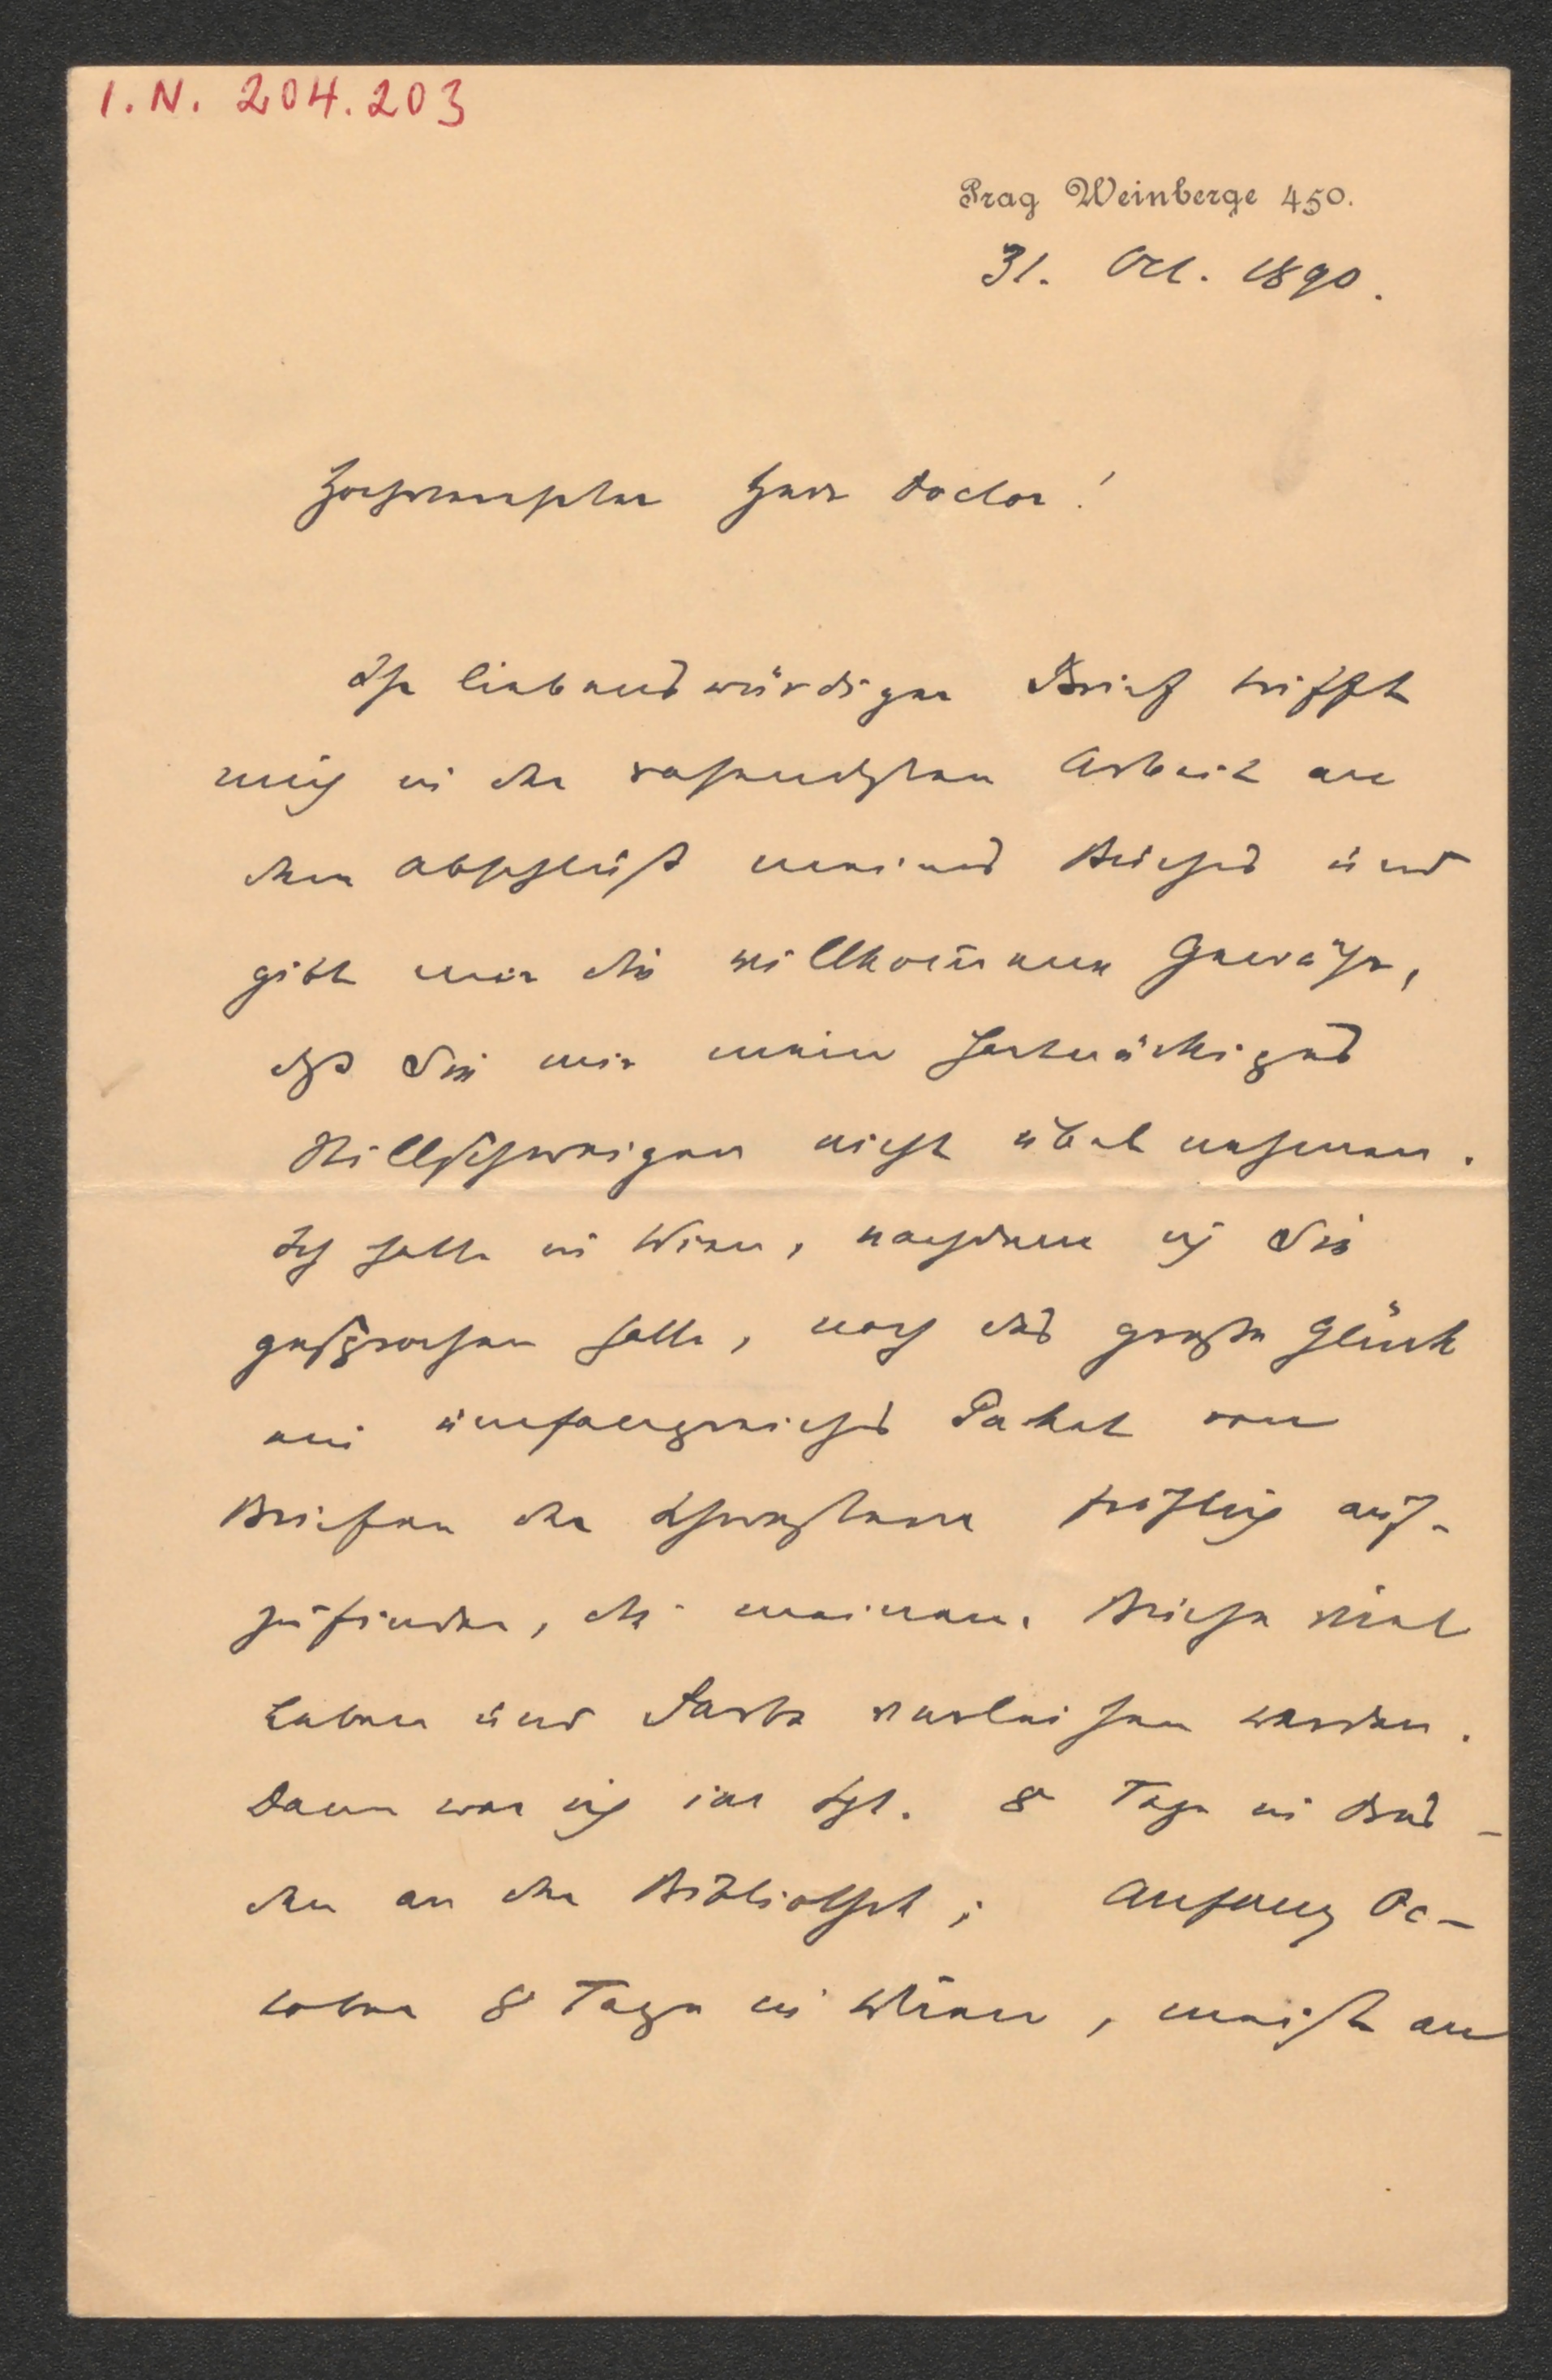 I.N. 204.203
Prag Weinberge 450.
31. Oct. 1890.
Hochverehrter Herr Doctor!
Ihr liebenswürdiger Brief trifft
mich in der rasendsten Arbeit an
dem Abschluß meines Buches und
gibt mir die willkommene Gewähr,
daß Sie mir mein hartnäckiges
Stillschweigen nicht übel nehmen.
Ich hatte in Wien, nachdem ich Sie
gesprochen hatte, noch das große Glück
ein umfangreiches Paket von
Briefen der Schwestern Fröhlich auf-
zufinden, die meinem Buche viel
Leben und Farbe verleihen werden.
Dann war ich im Spt. 8 Tage in Dres-
den an der Bibliothek; Anfang Oc-
tober 8 Tage in Wien, meist an